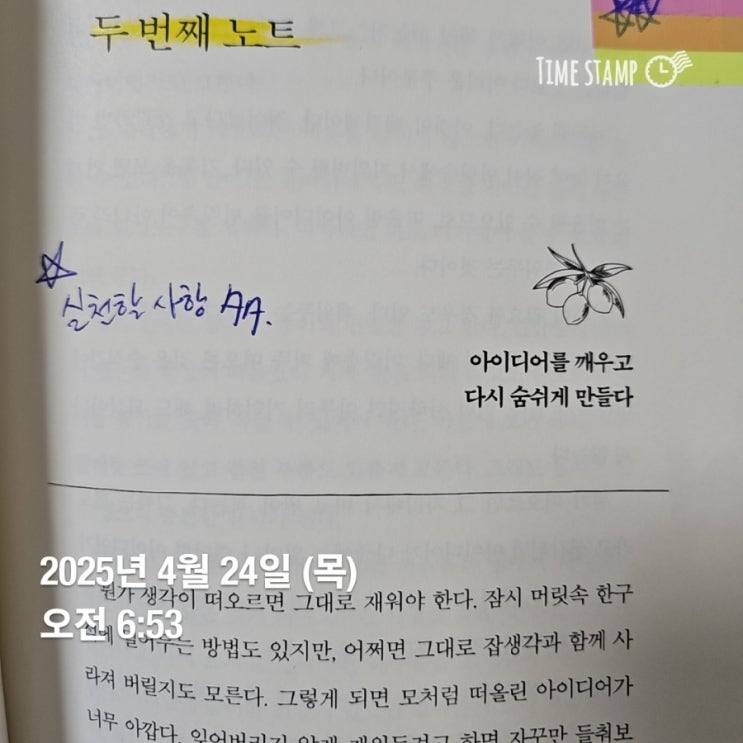 두 번째 노트
TIME STAMP
실천할 사항
아이디어를 깨우고
다시 숨쉬게 만들다
2025년 4월 24일 (목)
오전 6:53
뭔가 생각이 떠오르면 그대로 재워야 한다. 잠시 머릿속 한구
방법도 있지만, 어쩌면 그대로 잡생각과 함께 사
라져 버릴지도 모른다. 그렇게 되면 모처럼 떠올린 아이디어가
너무 아깝다. 잊어버리지 않게 재워두려고 하면 자꾸만 들춰보